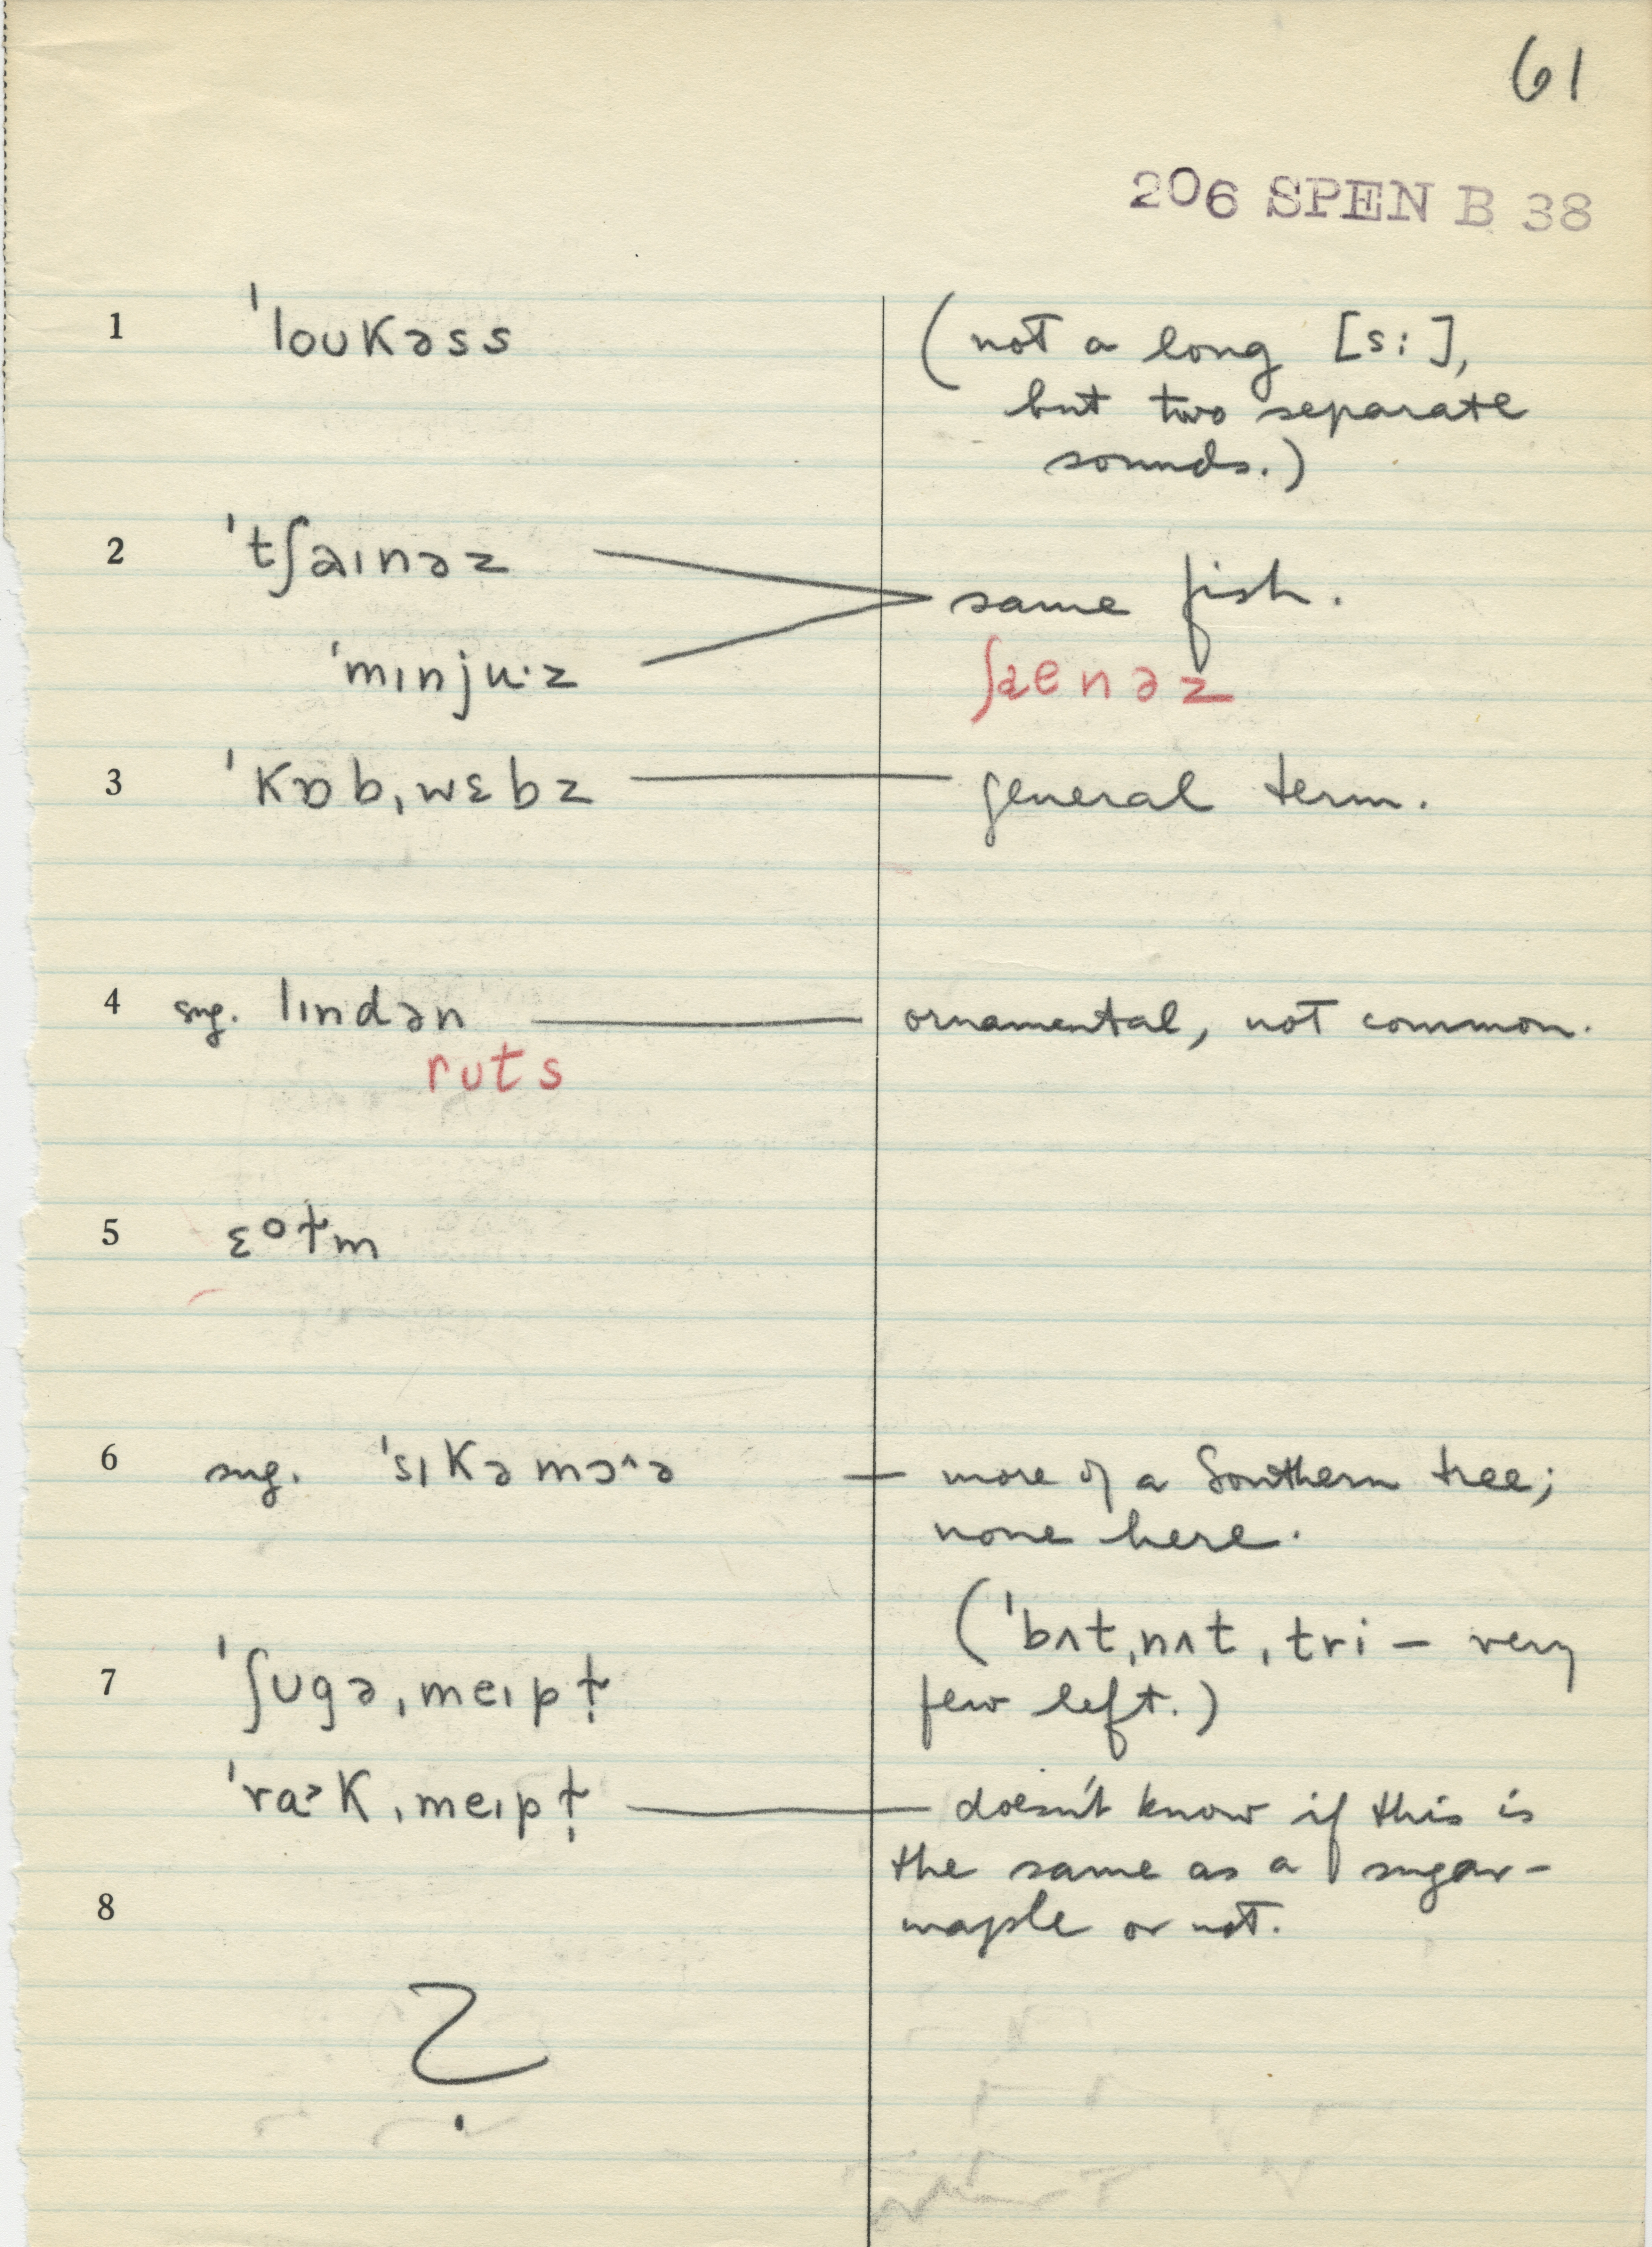 61
206 SPEN B 38
1 ˈloʊkəss (not a long [s:],
but two separate
sounds.)
2 ˈtʃaɪnəz same fish.
ˈmɪnju·z ʃaenəz
3 ˈkɒbˌwɛbz — general term.
4 sug. lɪndən — ornamental, not common.
rʊts
5
6 sug. ˈsɪkəmɔ^ə — more of a Southern tree;
none here.
(ˈbʌtˌnʌtˌtri – very
7 ˈʃʊgəˌmeɪpɫ̩ few left.)
ˈra˃kˌmeɪpɫ̩ — doesn't know if this is
the same as a sugar-
8 maple or not.
?